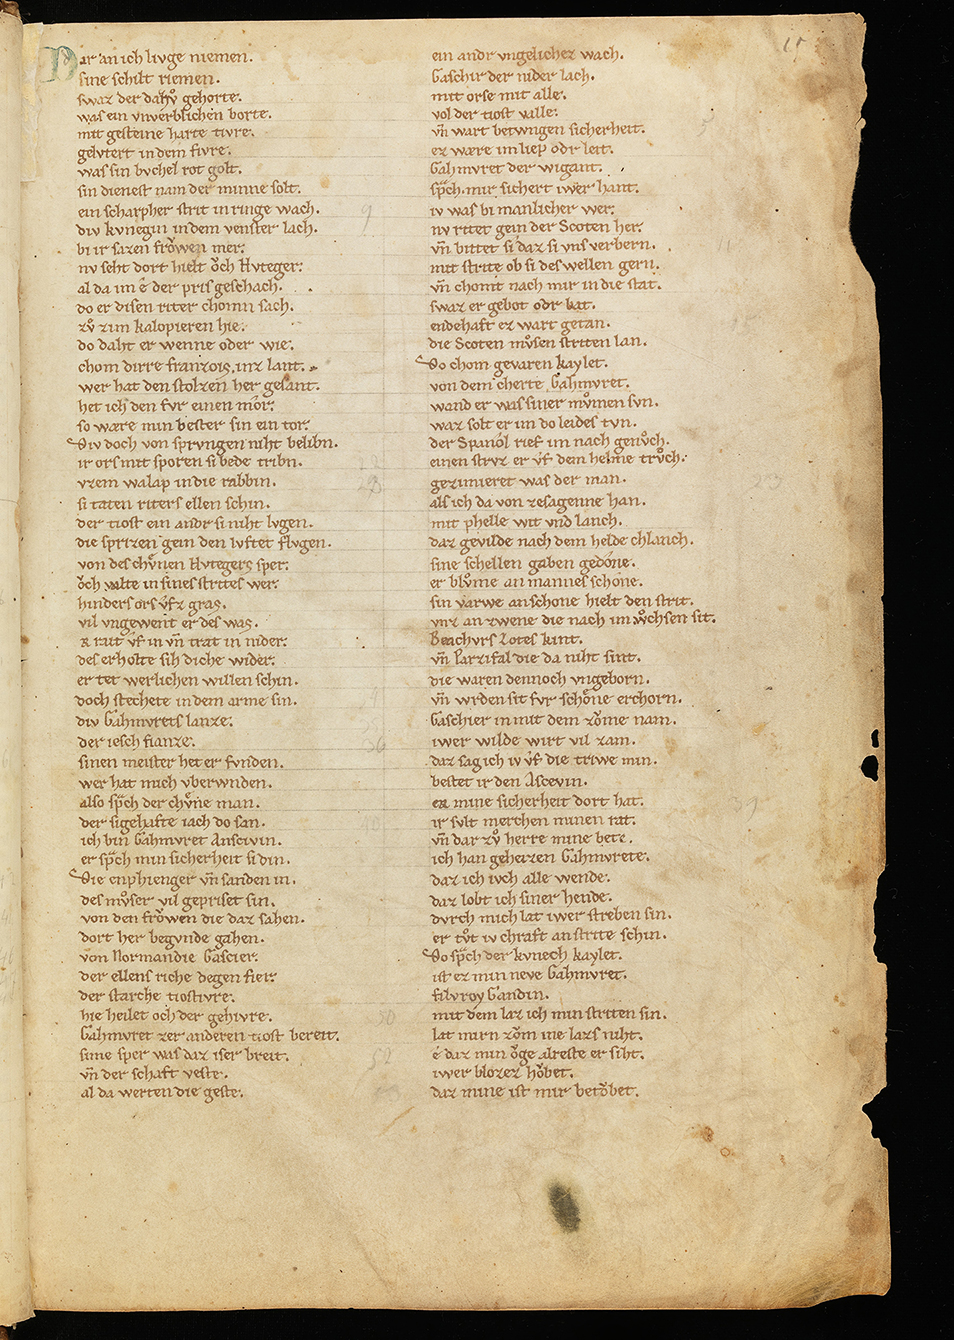 Dar an ich livge niemen.
sine schilt riemen.
swaz der dahvͦ gehorte.
was ein vnverblichen borte.
mit gesteine harte tivre.
gelvtert in dem fivre.
was sin bvchel rot golt.
sin dienest nam der minne solt.
ein scharpher strit in ringe wach.
div kvnegin in dem venster lach.
bi ir sazen froͮwen mer.
nv seht dort hielt oͮch Hvteger.
al da im e der pris geschach.
do er disen riter chomn sach.
zvͦ zim kalopieren hie.
do daht er wenne oder wie.
chom dirre franzois inz lant.
wer hat den stolzen her gesant.
het ich den fvr einen mor.
so wære min bester sin ein tor.
Div doch von sprvngen niht belibn.
ir ors mit sporen si bede tribn.
vzem walap in die rabbin.
si taten riters ellen schin.
der tiost ein andr si niht lvgen.
die sprizen gein den lvftet flvgen.
von des chvͤnen Hvtegers sper.
oͮch valte in sines strites wer.
hinders ors vͤfz gras.
vil vngewent er des was.
er rait vͤf in vn̄ trat in nider.
des erholte sih diche wider.
er tet werlichen willen schin.
doch stechete in dem arme sin.
div Gahmvrets lanze.
der iesch fianze.
sinen meister het er fvnden.
wer hat mich vberwnden.
also sp̄ch der chvͤne man.
der sigehafte iach do san.
ich bin Gahmvret Anscivin.
er sp̄ch min sicherheit si din.
Die enphienger vn̄ sanden in.
des mvͦser vil gepriset sin.
von den froͮwen die daz sahen.
dort her begvnde gahen.
von Normandie Gascier.
der ellens riche degen fier.
der starche tiostivre.
hie heilet och der gehivre.
Gahmvret zer anderen tiost bereit.
sime sper was daz iser breit.
vn̄ der schaft veste.
al da werten die geste.
ein andr vngelichez wach.
Gaschir der nider lach.
mit orse mit alle.
vol der tiost valle.
vn̄ wart betwngen sicherheit.
ez wære im liep odr leit.
Gahmvret der wigant.
sp̄ch mir sichert iwer hant.
iv was bi manlicher wer.
nv ritet gein der Scoten her.
vn̄ bittet si daz si vns verbern.
mit strite ob si des wellen gern.
vn̄ chomt nach mir in die stat.
swaz er gebot odr bat.
endehaft ez wart getan.
die Scoten mvͦsen striten lan.
Do chom gevaren kaylet.
von dem cherte Gahmvret.
wand er was siner mvͦmen svn.
waz solt er im do leides tvn.
der Spanol rief im nach genvͦch.
einen strvz er vͤf dem helme trvͦch.
gezimieret was der man.
als ich da von zesagenne han.
mit phelle wit vnd lanch.
daz gevilde nach dem helde chlanch.
sine schellen gaben gedone.
er blvͦme an mannes schone.
sin varwe an schone hielt den strit.
vnz an zwene die nach im wͦchsen sit.
Beachvrs Lotes kint.
vn̄ Parzifal die da niht sint.
die waren dennoch vngeborn.
vn̄ wrden sit fvr schoͤne erchorn.
Gaschier in mit dem zoͮme nam.
iwer wilde wirt vil zam.
daz sag ich iv vͤf die triwe min.
bestet ir den Ascevin.
ez mine sicherheit dort hat.
ir svlt merchen minen rat.
vn̄ dar zvͦ herre mine bete.
ich han geheizen Gahmvrete.
daz ich ivch alle wende.
daz lobt ich siner hende.
dvrch mich lat iwer streben sin.
er tvͦt iv chraft an strite schin.
Do sp̄ch der kvnech kaylet.
ist ez min neve Gahmvret.
filvroy Gandin.
mit dem laz ich min striten sin.
lat mirn zoͮm ine lazs niht.
e daz min oͮge alreste er siht.
iwer blozez hoͮbet.
daz mine ist mir betoͮbet.